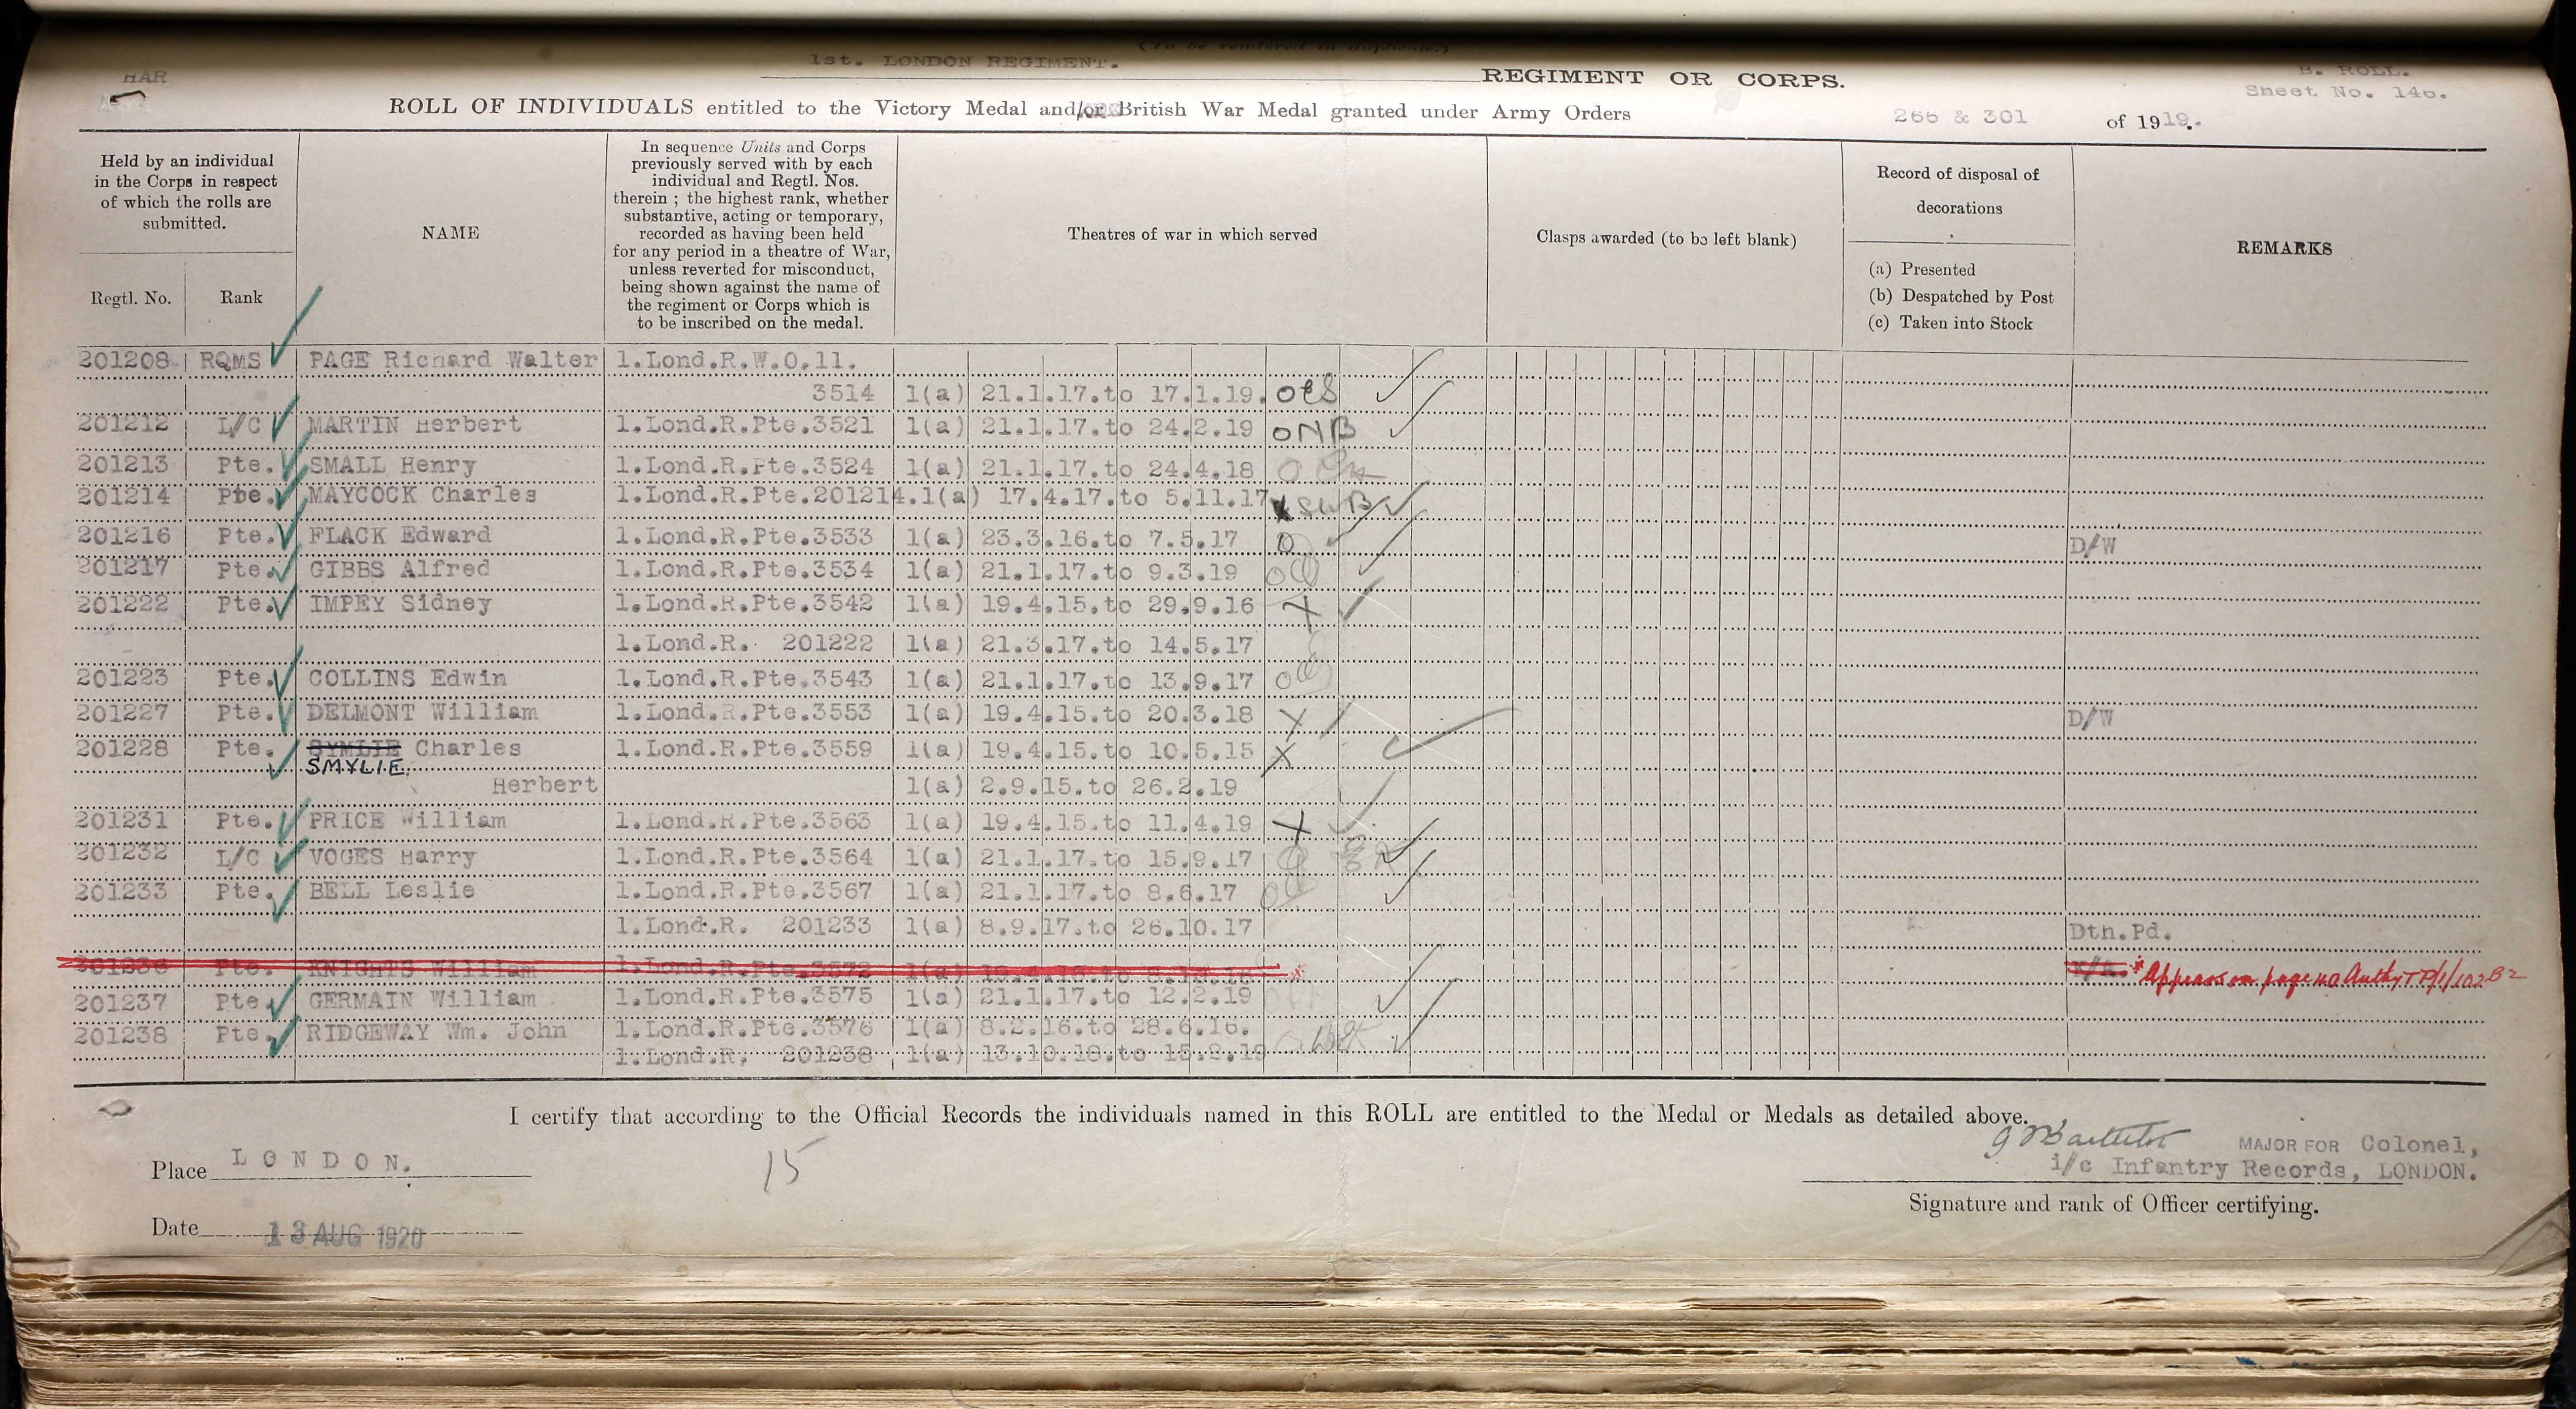 (To be rendered in duplicate.)
1st. LONDON REGIMENT. REGIMENT OR CORPS. B. ROLL.
HAR Sheet No. 146.
ROLL OF INDIVIDUALS entitled to the Victory Medal and/or British War Medal granted under Army Orders 266 & 301 of 1919.
Held by an individual in the Corps in respect of which the rolls are submitted.
Regtl. No. Rank
NAME
In sequence Units and Corps
previously served with by each
individual and Regtl. Nos.
therein ; the highest rank, whether
substantive, acting or temporary,
recorded as having been held
for any period in a theatre of War,
unless reverted for misconduct,
being shown against the name of
the regiment or Corps which is
to be inscribed on the medal.
Theatres of war in which served
Clasps awarded (to be left blank)
Record of disposal of
decorations
(a) Presented
(b) Despatched by Post
(c) Taken into Stock
REMARKS
201208 RQMS PAGE Richard Walter 1.Lond.R.W.O.11.
3514 1(a) 21.1.17.to 17.1.19.
201212 L/C MARTIN Herbert 1.Lond.R.Pte.3521 1(a) 21.1.17.to 24.2.19
201213 Pte. SMALL Henry 1.Lond.R.Pte.3524 1(a) 21.1.17.to 24.4.18
201214 Pte. MAYCOCK Charles 1.Lond.R.Pte.201214.1(a) 17.4.17.to 5.11.17
201216 Pte. FLACK Edward 1.Lond.R.Pte.3533 1(a) 23.3.16.to 7.5.17 D/W
201217 Pte. GIBBS Alfred 1.Lond.R.Pte.3534 1(a) 21.1.17.to 9.3.19
201222 Pte. IMPEY Sidney 1.Lond.R.Pte.3542 1(a) 19.4.15.to 29.9.16 X
1.Lond.R. 201222 1(a) 21.3.17.to 14.5.17
201223 Pte. COLLINS Edwin 1.Lond.R.Pte.3543 1(a) 21.1.17.to 13.9.17
201227 Pte. DELMONT William 1.Lond.R.Pte.3553 1(a) 19.4.15.to 20.3.18 X D/W
201228 Pte. SYMLIE Charles 1.Lond.R.Pte.3559 1(a) 19.4.15.to 10.5.15 X
SMYLIE.
Herbert 1(a) 2.9.15.to 26.2.19
201231 Pte. PRICE William 1.Lond.R.Pte.3563 1(a) 19.4.15.to 11.4.19 X
201232 L/C VOGES Harry 1.Lond.R.Pte.3564 1(a) 21.1.17.to 15.9.17
201233 Pte. BELL Leslie 1.Lond.R.Pte.3567 1(a) 21.1.17.to 8.6.17
1.Lond.R. 201233 1(a) 8.9.17.to 26.10.17 Dth.Pd.
201236 Pte. KNIGHTS William 1.Lond.R.Pte.3572 1(a) * Appears on page 40 Auth
201237 Pte. GERMAIN William 1.Lond.R.Pte.3575 1(a) 21.1.17.to 12.2.19
201238 Pte. RIDGEWAY Wm. John 1.Lond.R.Pte.3576 1(a) 8.2.16.to 28.6.16.
1.Lond.R. 201238 1(a) 13.10.18.to 15.2.19
I certify that according to the Official Records the individuals named in this ROLL are entitled to the Medal or Medals as detailed above.
Place LONDON. 15 MAJOR FOR Colonel,
i/c Infantry Records, LONDON.
Signature and rank of Officer certifying.
Date 13 AUG 1920